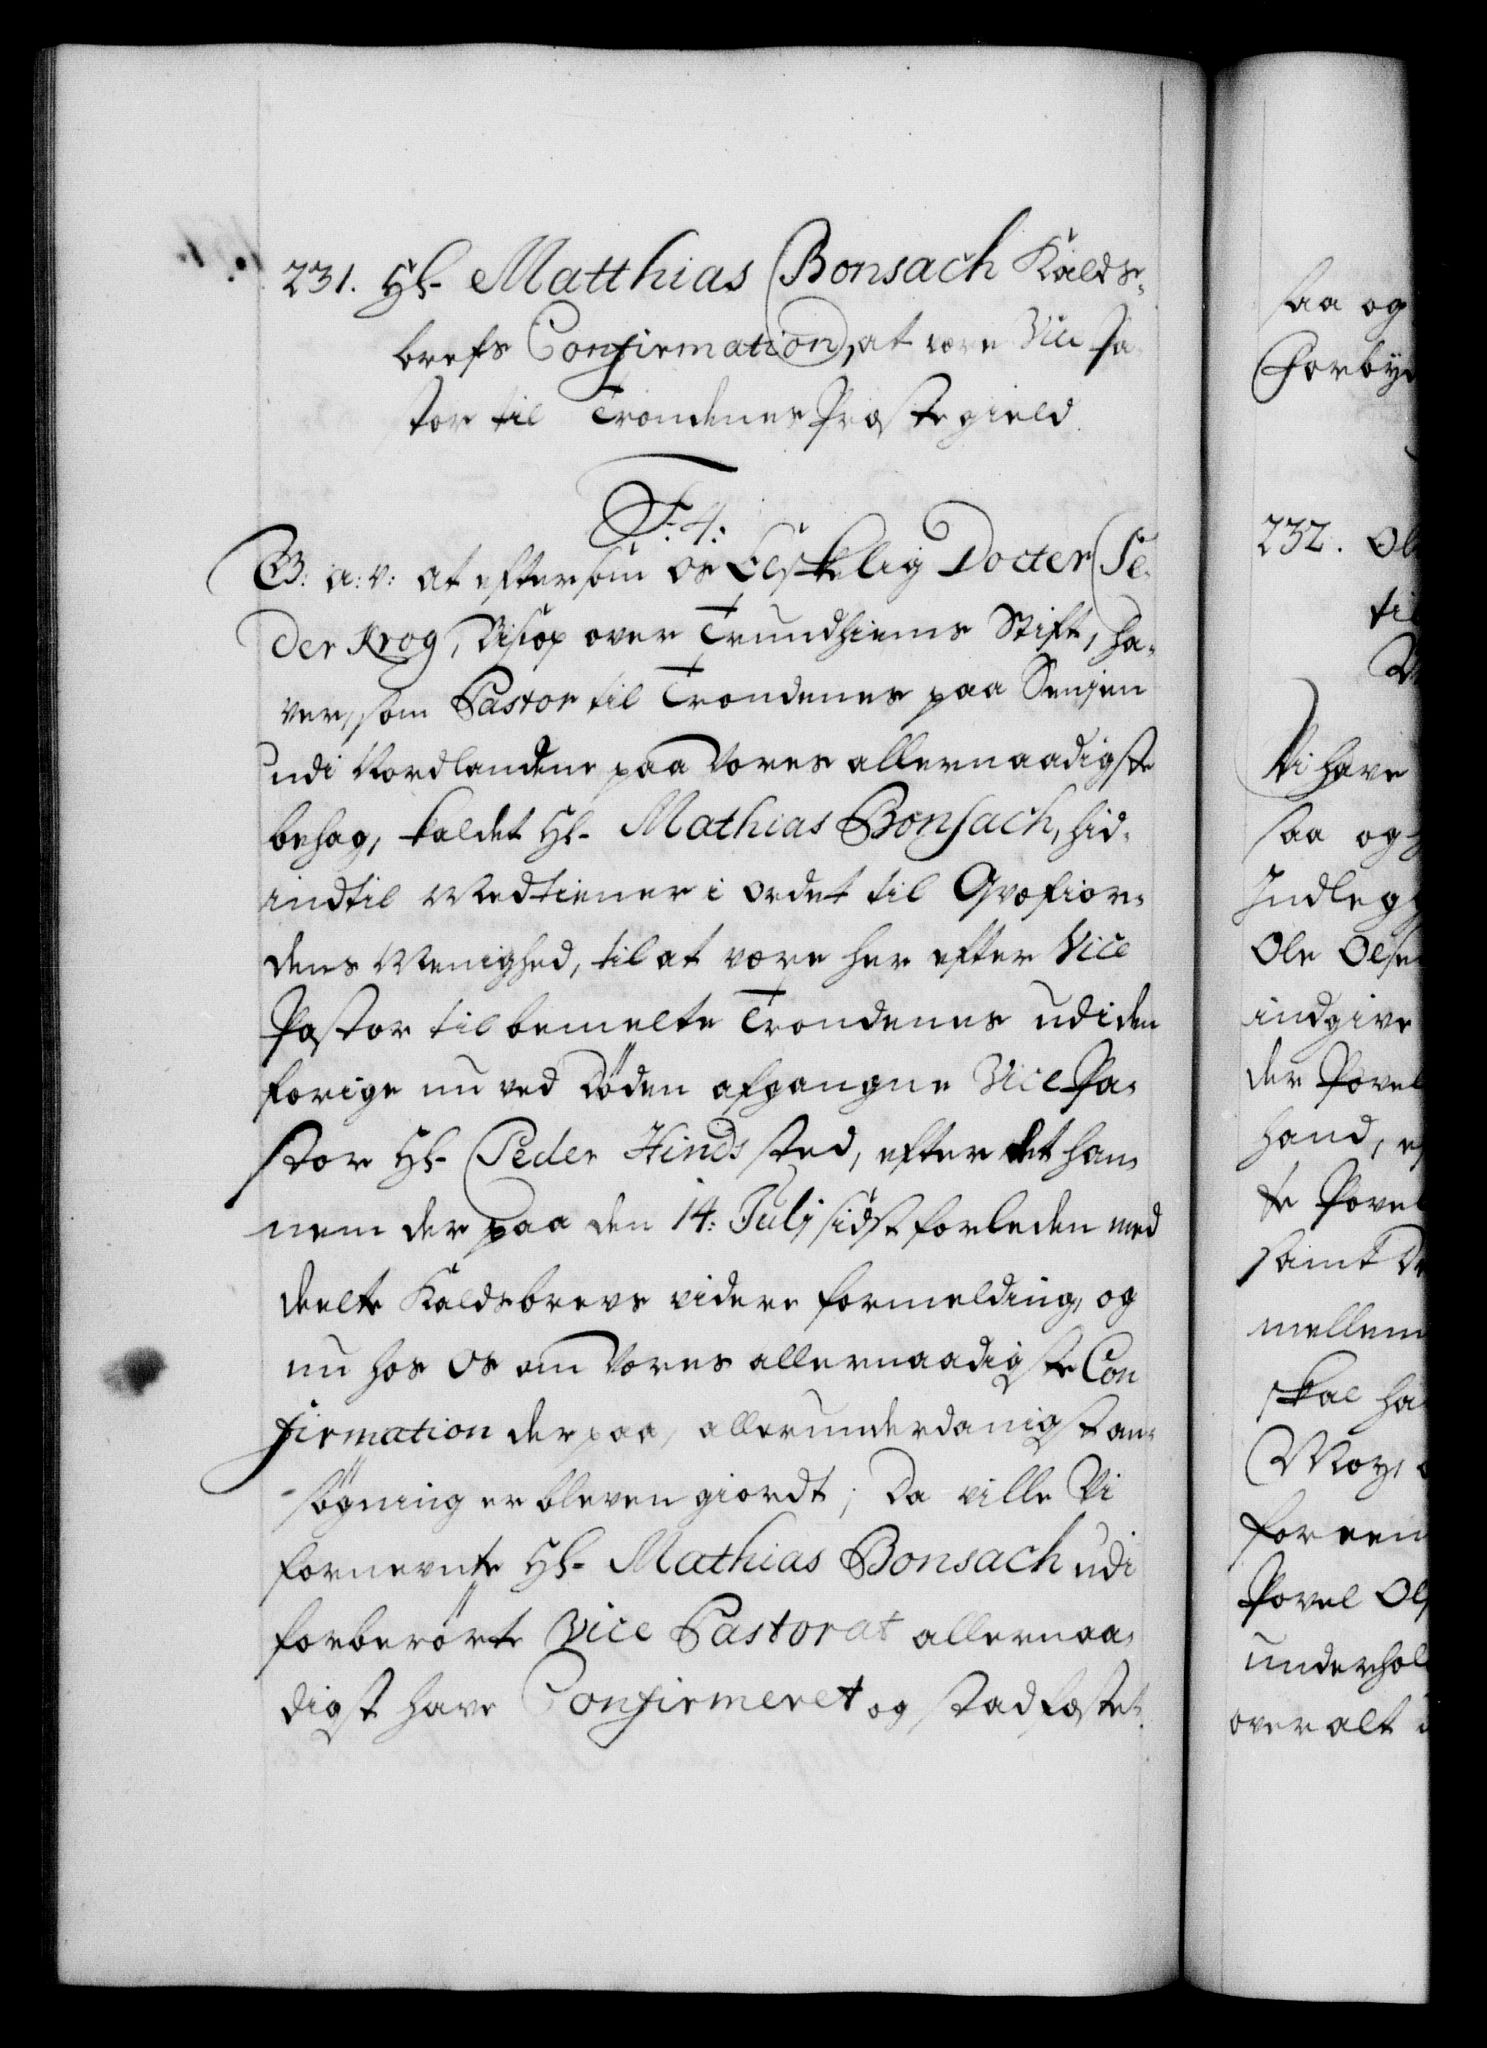 231. Hr. Matthias Bonsach Kalds-
brefs Confirmation, at være Vice Pa-
stor til Trondenes Præstegield.
F. 4:
G: a: v: at eftersom os Elskelig Docter Pe-
der Krog, Bisop over Trundhiems Stift, ha-
ver, som Pastor til Trondenes paa Senjen
udi Nordlandene paa Vores allernaadigste
behag, kaldet Hr. Mathias Bonsach, hid-
indtil Medtiener i ordet til Qvæfior-
dens Menighed, til at være her efter Vice
Pastor til bemelte Trondenes udi den
forige nu ved Døden afgangne Vice Pa-
stor Hr. Peder Hinds sted, efter det han-
nem der paa den 14. Julj sidst forleden med
deelte Kaldsbrevs videre formelding, og
nu hos Os om Vores allernaadigste Con
firmation derpaa, allerunderdanigst an-
søgning er bleven giordt; Da ville Vi
fornevnte Hr. Mathias Bonsach udi
forberørte Vice Pastorat allernaa-
digst have Confirmeret og stadfæstet
saa og
Forby
232. Ol
til
Vi have
saa og
Indleg
Ole Olse
indgive
der Povel
hand, ef
te Povel
samt De
mellem
skal ha
Moy,
for een
Povel Ols
underhol
over alt